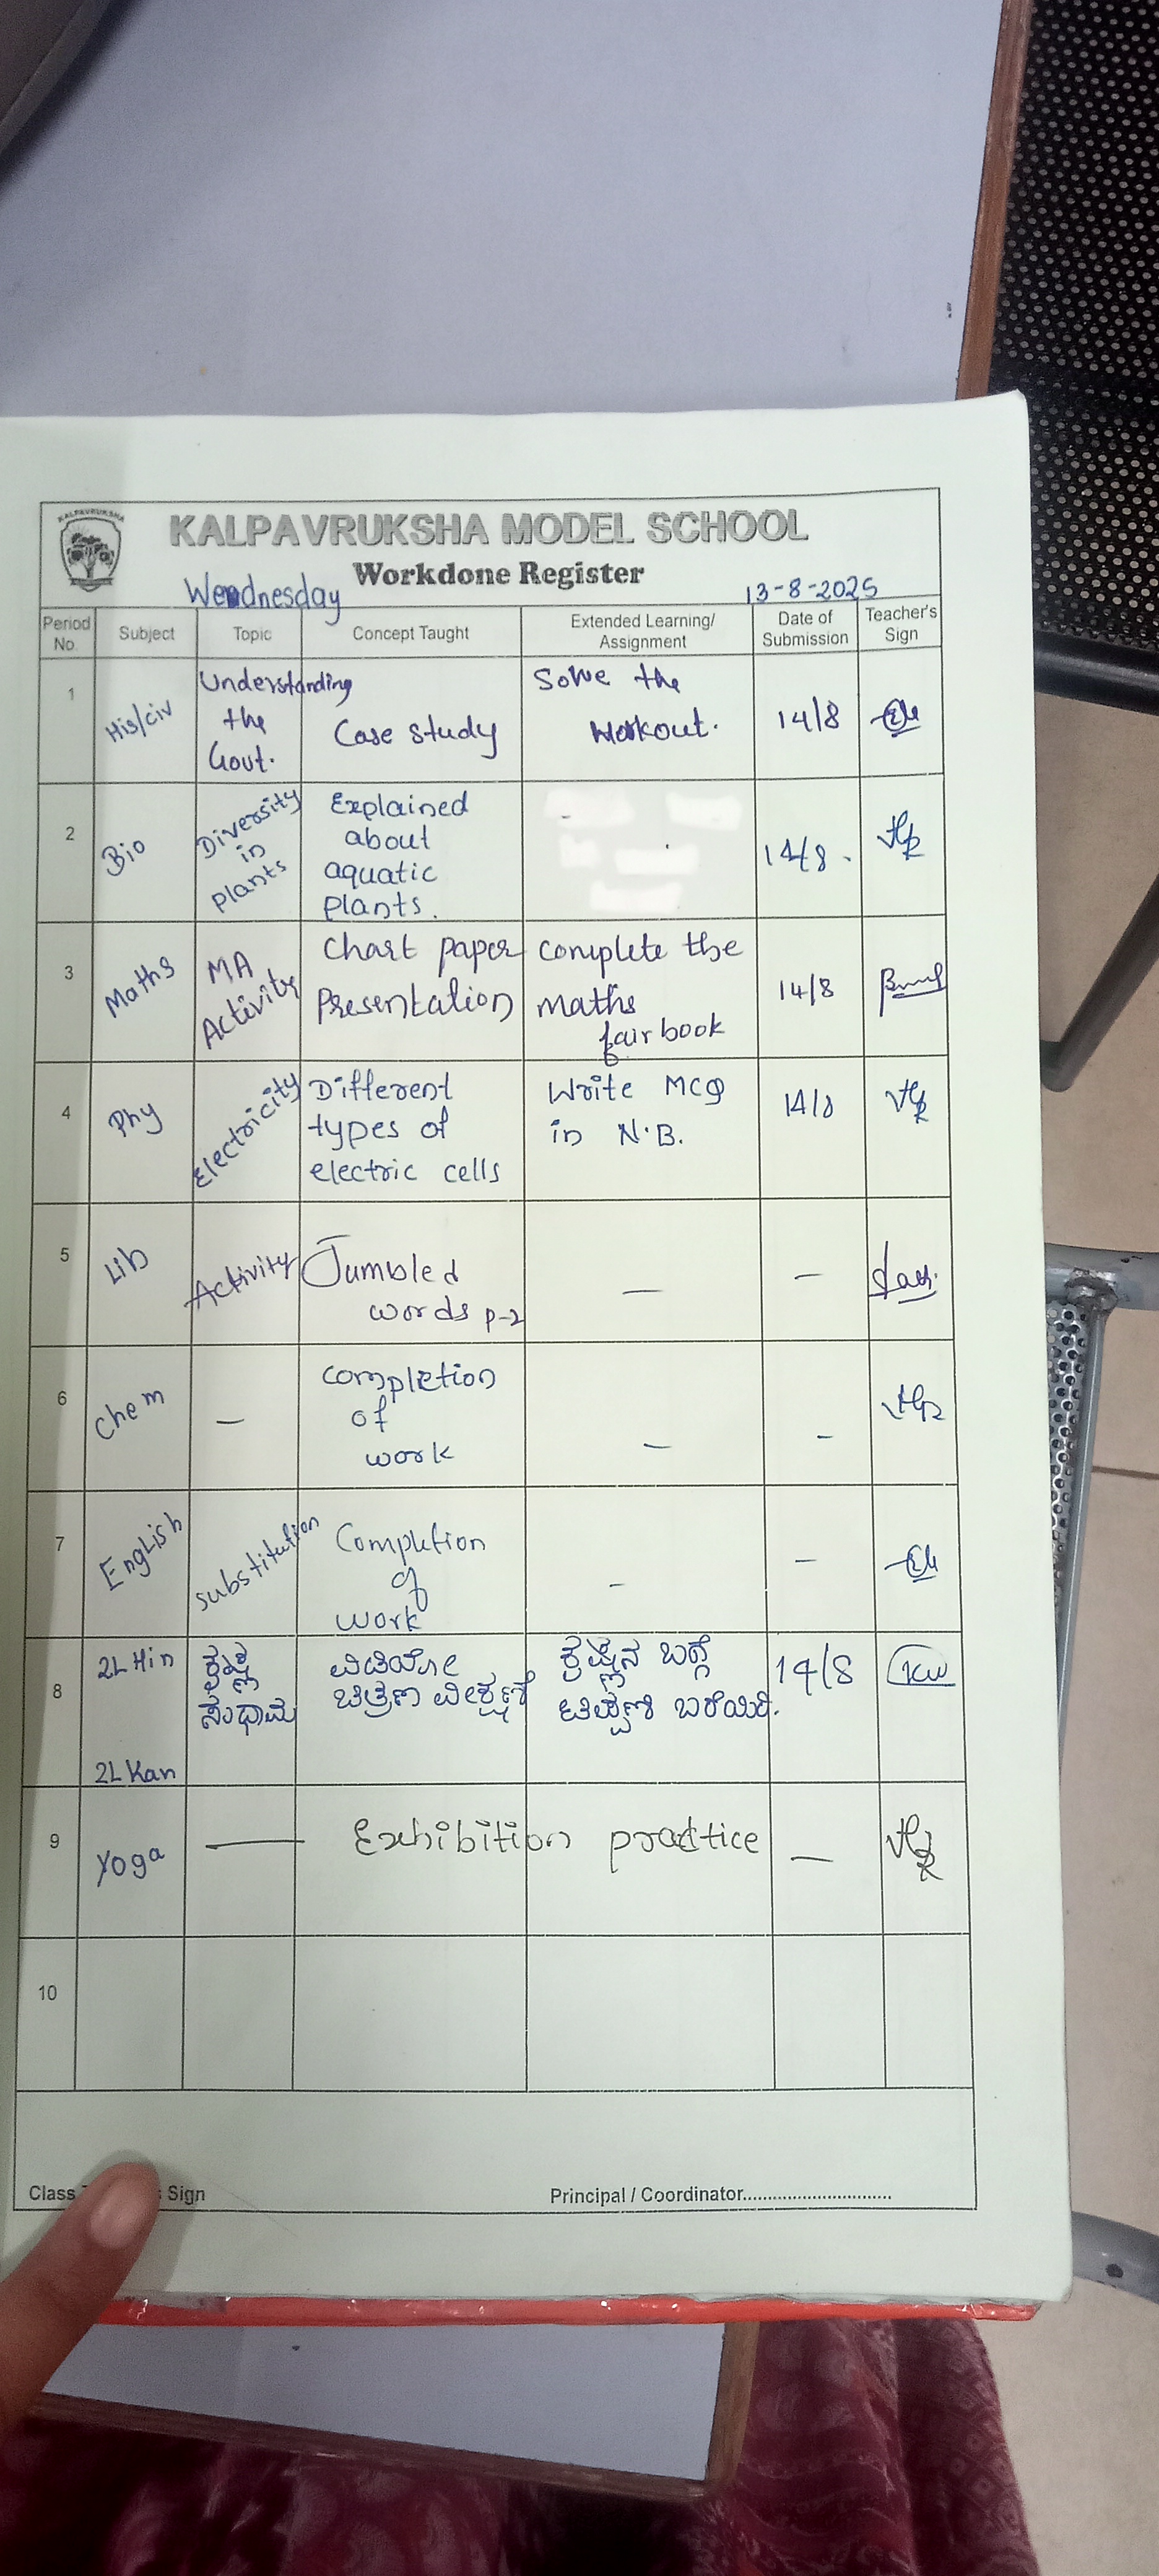 KALPAVRUKSHA
KALPAVRUKSHA MODEL SCHOOL
Workdone Register
Wendnesday 13-8-2025
Period No. Subject Topic Concept Taught Extended Learning/ Assignment Date of Submission Teacher's Sign
1 His/civ Understanding the Govt. Case study Solve the Workout. 14/8
2 Bio Diversity in plants Explained about aquatic plants. 14/8.
3 Maths MA Activity Chart paper Presentation Complete the maths fair book 14/8
4 Phy Electricity Different types of electric cells Write MCQ in N.B. 14/8
5 Lib Activity Jumbled words p-2 — —
6 Chem — completion of work — —
7 English substitution Completion of work - —
8 2L Hin 2L Kan ಕೃಷ್ಣ ಸುಧಾಮ ವಿಡಿಯೋ ಚಿತ್ರಣ ವೀಕ್ಷಣೆ ಕೃಷ್ಣನ ಬಗ್ಗೆ ಟಿಪ್ಪಣಿ ಬರೆಯಿರಿ. 14/8
9 Yoga — Exhibition practice —
10
Class Sign Principal / Coordinator..............................